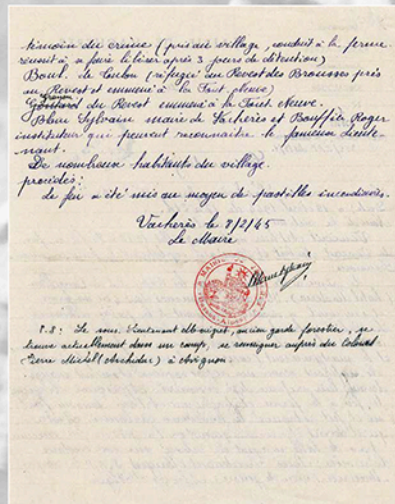 témoin du crime (pris au village, conduit à la ferme
réussit à se faire libérer après 3 jours de détention)
Bout. de Toulon (réfugié au Revest des Brousses près
au Revest et emmené à la Font Neuve)
du Revest emmené à la Font Neuve.
Blanc Sylvain maire de Vachères et Bouffier Roger
instituteur qui peuvent reconnaître le fameux lieute-
nant.
De nombreux habitants du village.
procédés:
Le feu a été mis au moyen de pastilles incendiaires.
Vachères le 8/2/45
Le Maire
P.S: Le sous lieutenant ancien garde forestier, se
trouve actuellement dans un camp, se renseigner auprès du Colonel
Pierre Michel (Archiduc) à Avignon